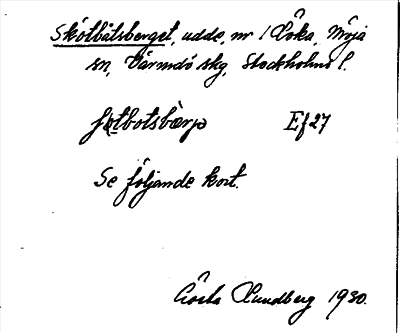 Skötbåtsberget, udde, nr 1 Löka, Möja
sn, Värmdö skg, Stockholms l.
Ef 27
Se följande kort.
Gösta Lundberg 1930.